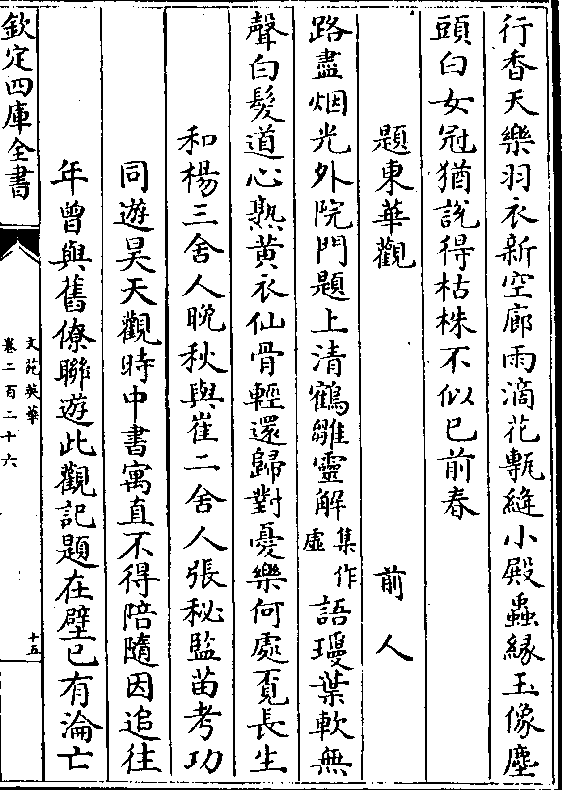 行香天樂羽衣新空廊雨滴花甎縫小殿蟲緣玉像塵
頭白女冠猶說得枯株不似已前春
題東華觀 前人
路盡烟光外院門題上清鶴雛靈解集作虛語瓊葉軟無
聲白髮道心熟黃衣仙骨輕還歸對憂樂何處覔長生
和楊三舍人晚秋與崔二舍人張秘監苗考功
同遊昊天觀時中書寓直不得陪隨因追往
年曾與舊僚聯遊此觀記題在壁已有淪亡
欽定四庫全書
文苑英華
卷二百二十六
十五